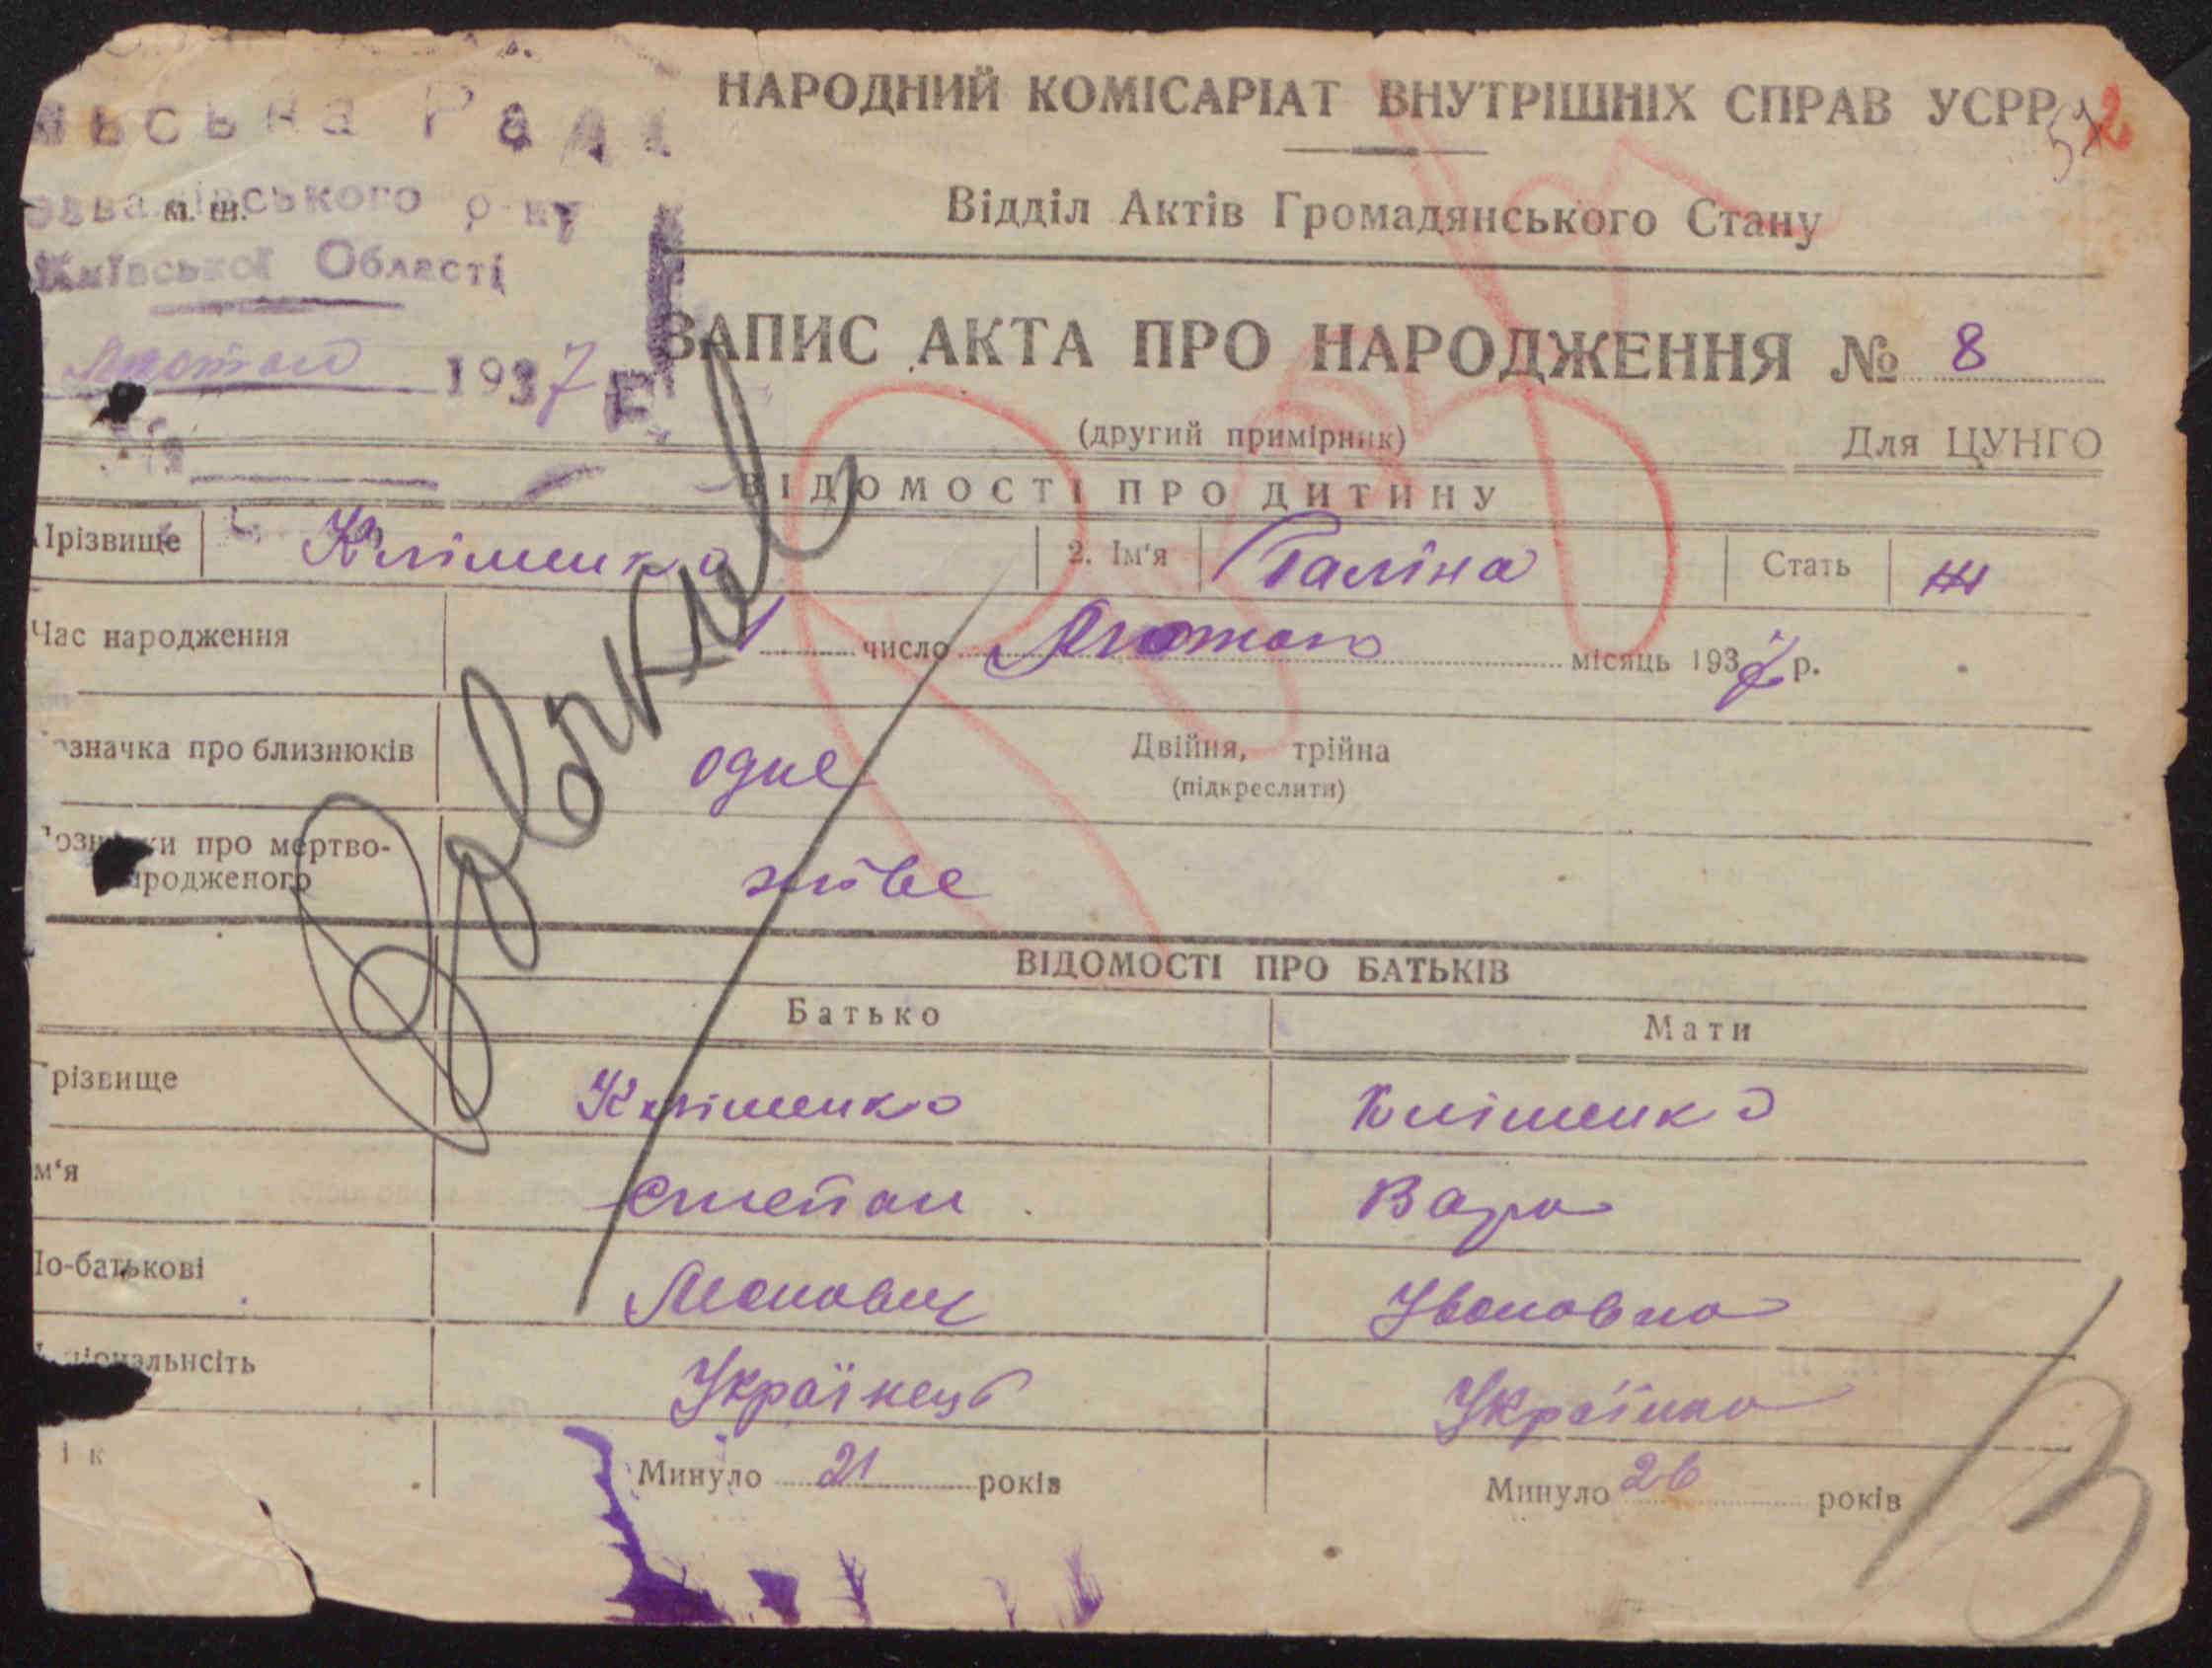 НАРОДНИЙ КОМІСАРІАТ ВНУТРІШНІХ СПРАВ УСРР
Відділ Актів Громадянського Стану
м. ш.
Київської Області
Лютого 1937 р.
ЗАПИС АКТА ПРО НАРОДЖЕННЯ № 8
(другий примірник)
Для ЦУНГО
ВІДОМОСТІ ПРО ДИТИНУ
Прізвище Кліменко 2. Ім'я Галіна Стать ж
Час народження 1 число Лютого місяць 1937 р.
означка про близнюків одне Двійня, трійна
(підкреслити)
про мертво-
народженого живе
ВІДОМОСТІ ПРО БАТЬКІВ
Батько Мати
різвище Кліменко Кліменко
м'я Степан Варо
По-батькові Івановно
національнсіть Українець Українко
ік Минуло 21 років Минуло 26 років